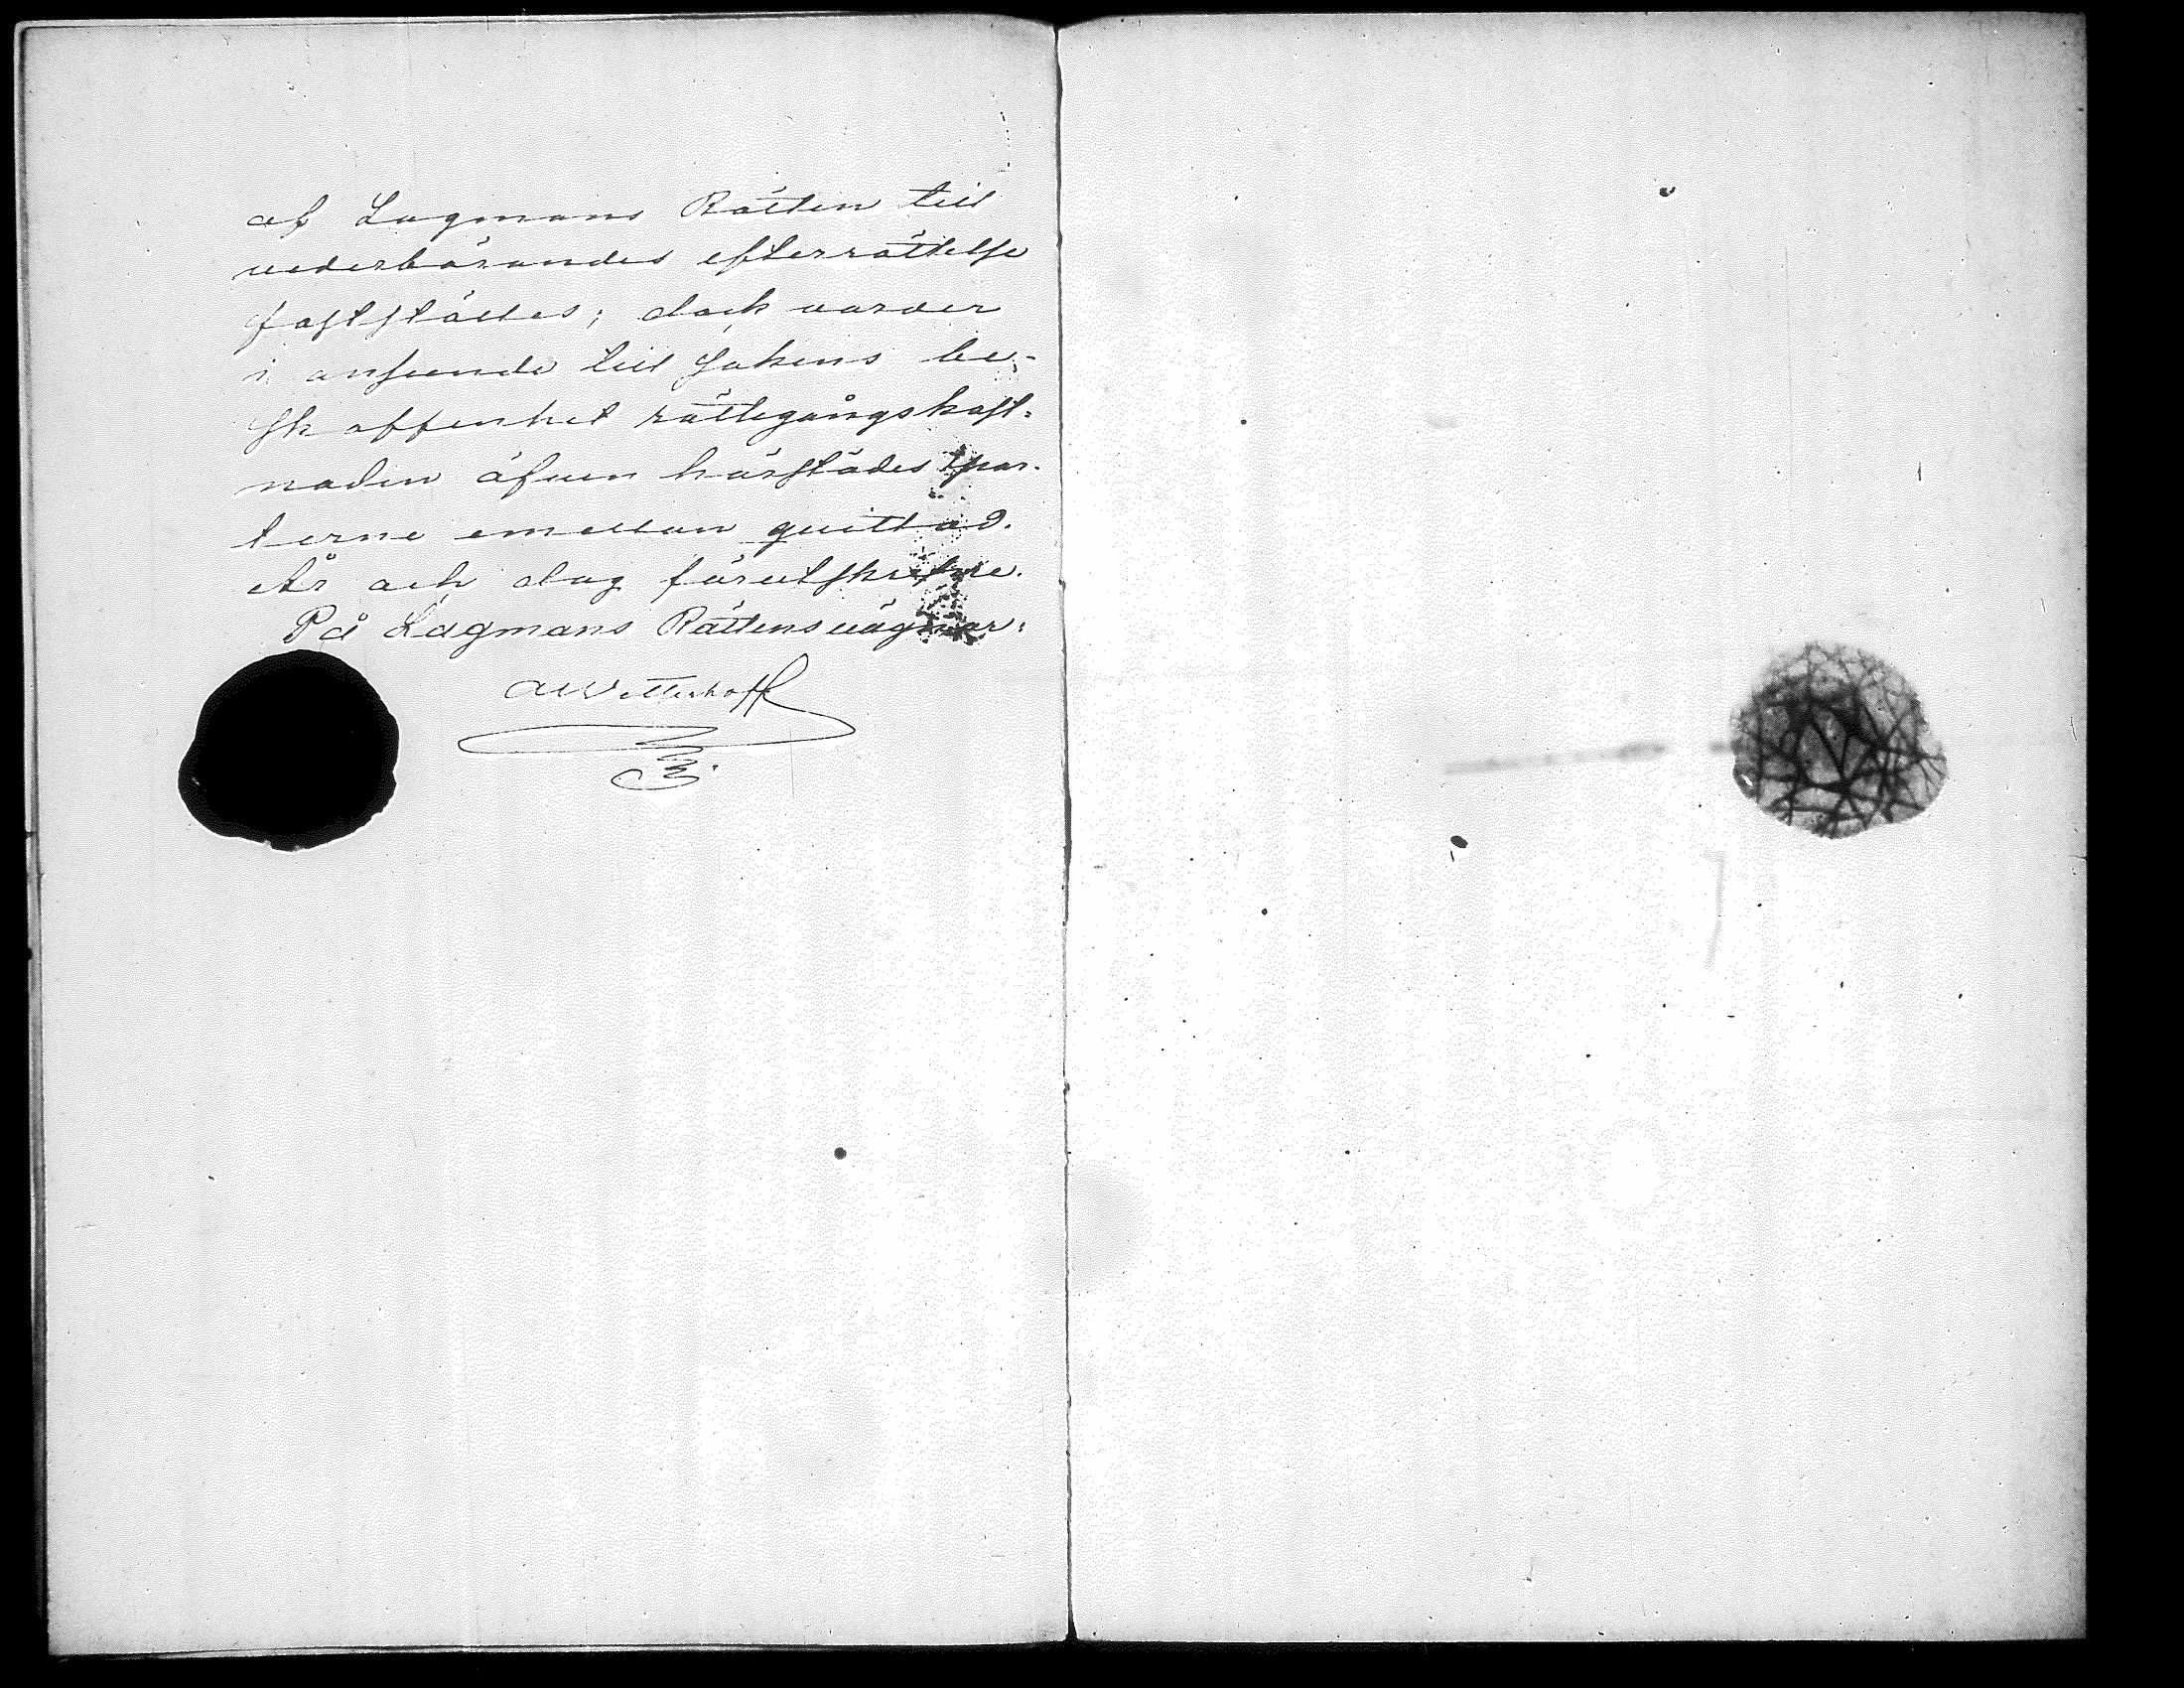 af Lagmans Rätten till
vederbörandes efterrättelse
fastställes; dock varder
i anseende till sakens be-
skaffenhet rättegångskost-
naden äfven härstädes par-
terne emellan quittad.
År och dag förutskrifne.
På Lagmans Rättens vägnar:
AWetterhoff